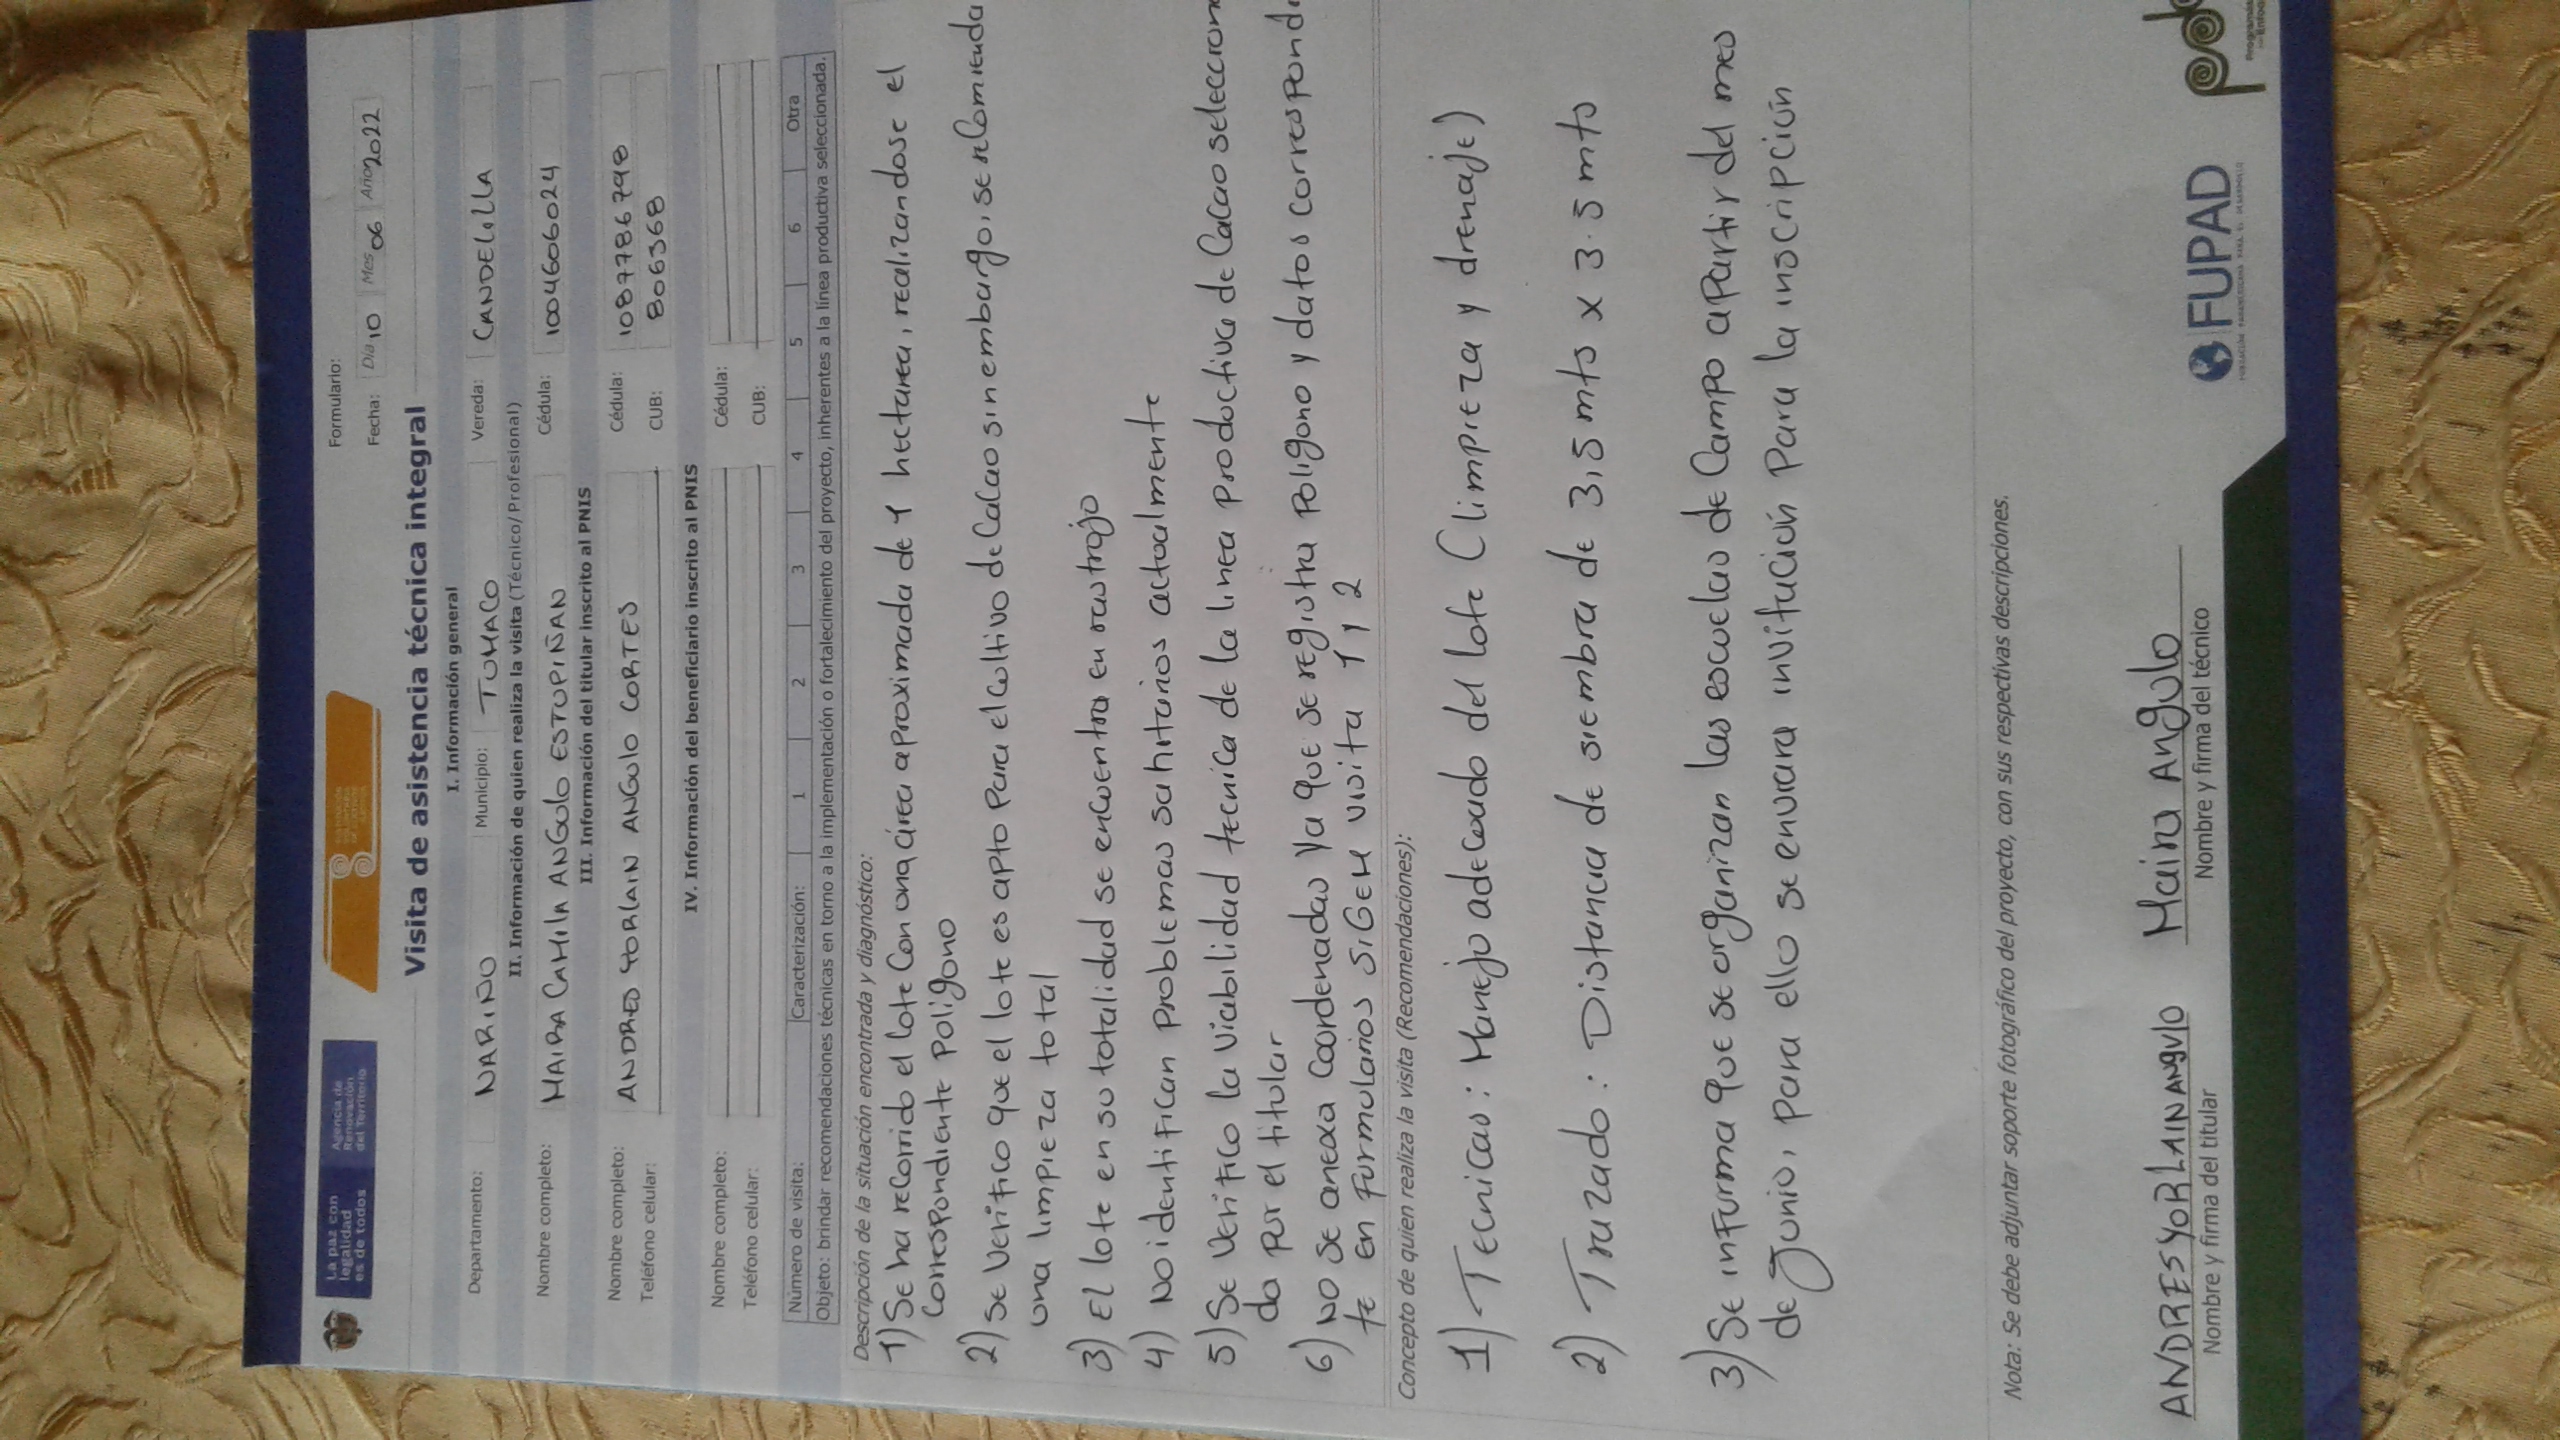 La paz con legalidad es de todos
Agencia de Renovación del Territorio
Formulario:
Fecha: Día 10 Mes 06 Año 2022
Visita de asistencia técnica integral
I. Información general
Departamento: NARIÑO Municipio: TUMACO Vereda: CANDELILLA
II. Información de quien realiza la visita (Técnico/Profesional)
Nombre completo: MAIRA CAMILA ANGULO ESTUPIÑAN Cédula: 1004606024
III. Información del titular inscrito al PNIS
Nombre completo: ANDRES YORLAIN ANGULO CORTES Cédula: 1087786798
Teléfono celular: CUB: 806368
IV. Información del beneficiario inscrito al PNIS
Nombre completo: Cédula:
Teléfono celular: CUB:
Número de visita: Caracterización: 1 2 3 4 5 6 Otra
Objeto: brindar recomendaciones técnicas en torno a la implementación o fortalecimiento del proyecto, inherentes a la línea productiva seleccionada.
Descripción de la situación encontrada y diagnóstico:
1) Se ha recorrido el lote con una área aproximada de 1 hectarea, realizandose el
correspondiente Poligono
2) Se verifico que el lote es apto Para el cultivo de Cacao sin embargo, se recomienda
una limpieza total
3) El lote en su totalidad se encuentra en rastrojo
4) No identifican Problemas sanitarios actualmente
5) Se verifico la viabilidad tecnica de la linea Productiva de Cacao seleccion
da Por el titular
6) No se anexa Coordenadas Ya que se registra Poligono y datos correspondi
te en formularios SIGEM visita 1 y 2
Concepto de quien realiza la visita (Recomendaciones):
1) Tecnicas: Manejo adecuado del lote (limpieza y drenaje)
2) Trazado: Distancia de siembra de 3,5 mts x 3.5 mts
3) Se informa que se organizan las escuelas de Campo apartir del mes
de Junio, para ello se enviara invitación Para la inscripción
Nota: Se debe adjuntar soporte fotográfico del proyecto, con sus respectivas descripciones.
ANDRES YORLAIN ANGULO Maira Angulo
Nombre y firma del titular Nombre y firma del técnico
FUPAD